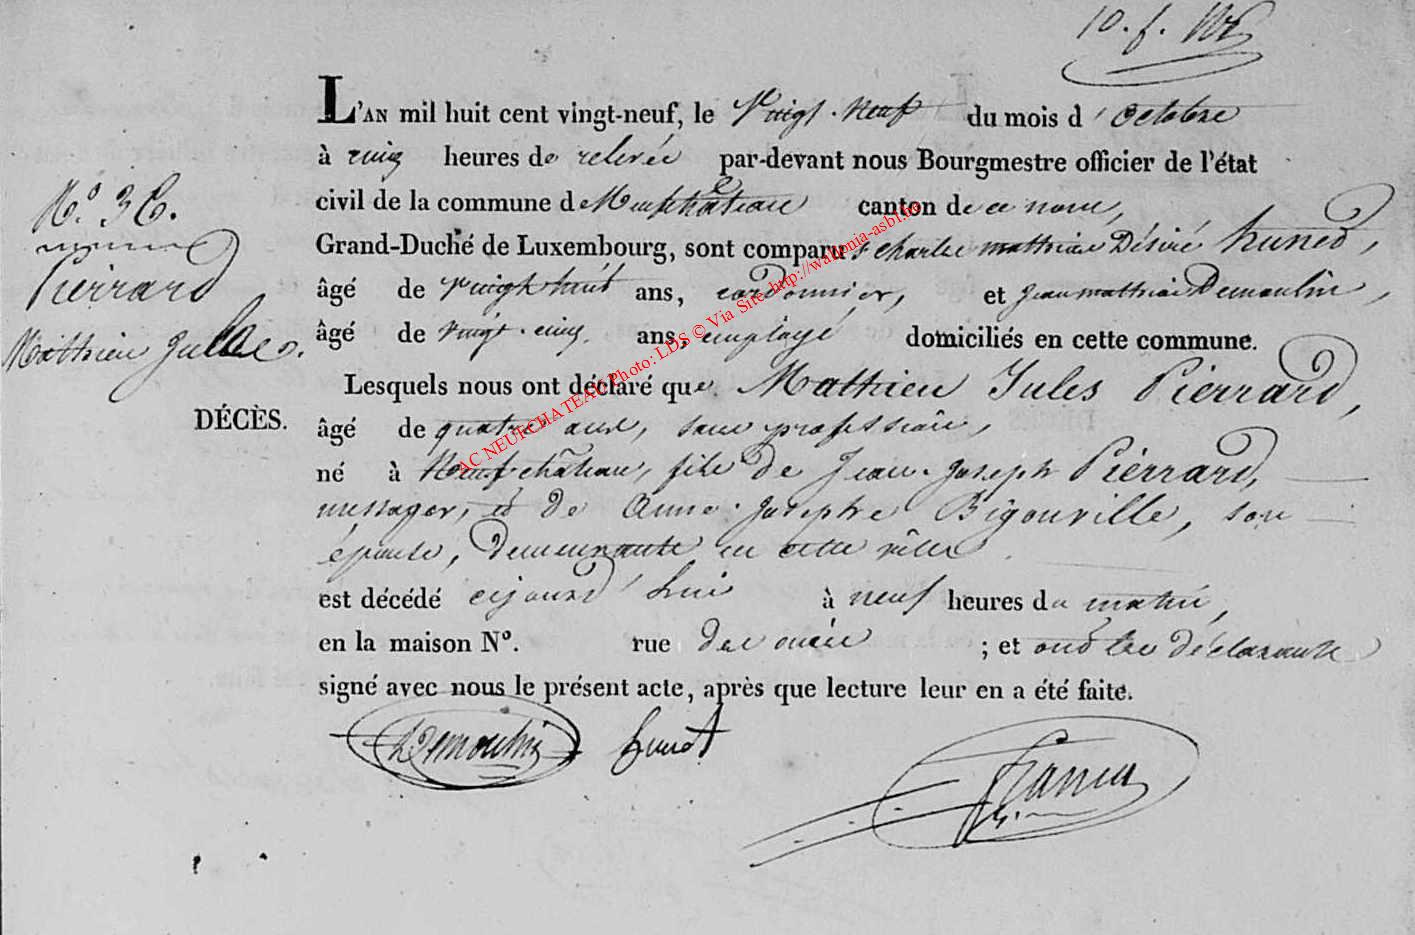 10. f.
L'AN mil huit cent vingt-neuf, le Vingt-Neuf du mois d'Octobre
à cinq heures de relevée par-devant nous Bourgmestre officier de l'état
civil de la commune de Neufchâteau canton de ce nom,
Grand-Duché de Luxembourg, sont comparus charles mathieu Désiré huned,
âgé de Vingt huit ans, cordonnier, et jean mathieu Demoulin,
âgé de vingt-cinq ans, employé domiciliés en cette commune.
N° 36.
Pierrard
Mathieu Jules.
DÉCÈS.
Lesquels nous ont déclaré que Mathieu Jules Pierrard,
âgé de quatre ans, sans profession,
né à Neufchâteau, fils de Jean-Joseph Pierrard,
messager, et de Anne-Josephe Bigonville, son
épouse, demeurante en cette ville
est décédé cejourd'hui à neuf heures du matin,
en la maison N°. rue ; et ont les déclarants
signé avec nous le présent acte, après que lecture leur en a été faite.
Demoulin
AC NEUFCHATEAU Photo: LDS © Via Site http://wallonia-asbl.be